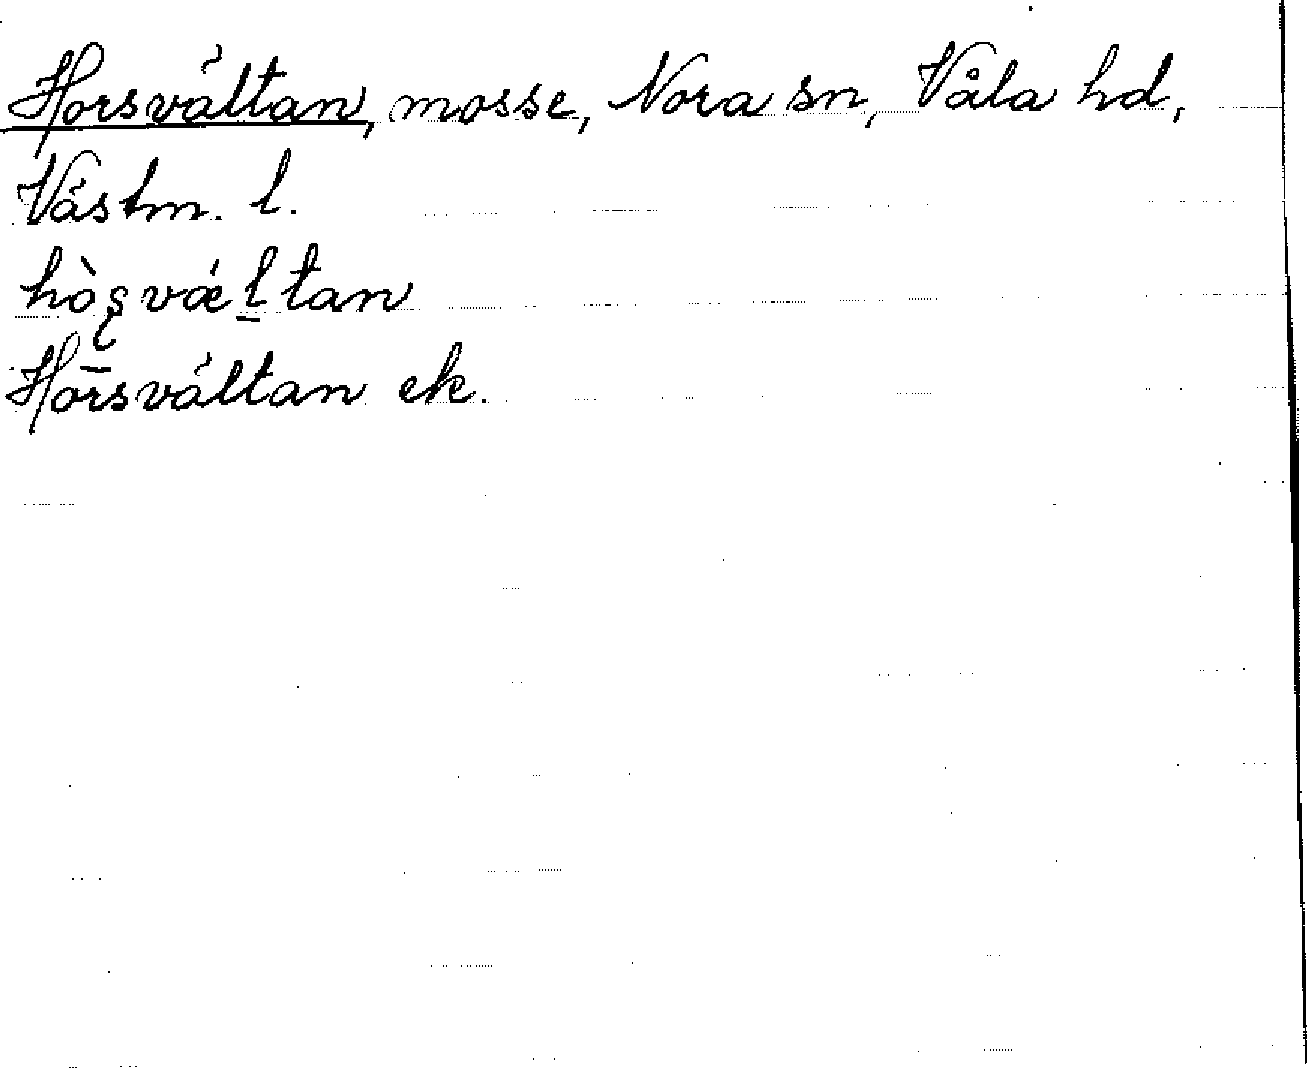 Horsvältan, mosse, Nora sn, Våla hd,
Västm. l.
hòʂvǽḻtan
Hor̄svältan ek.